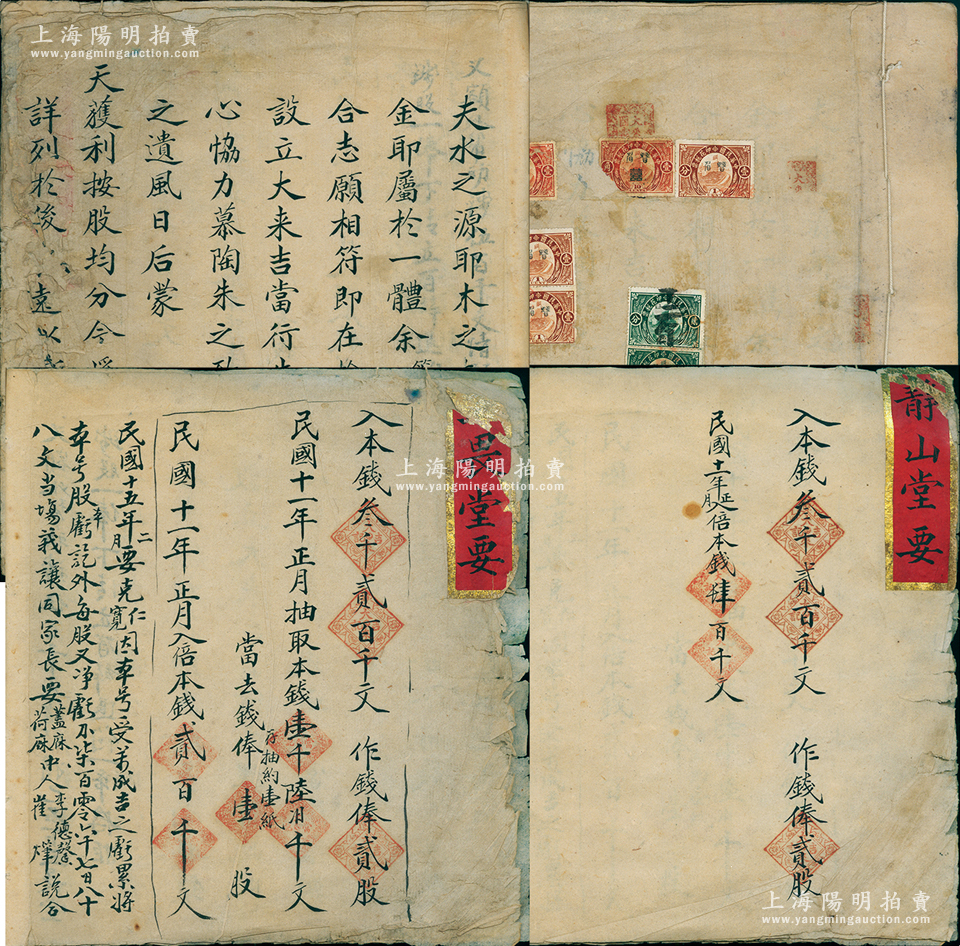 上海陽明拍賣
www.yangmingauction.com
上海陽明拍賣
www.yangmingauction.com
夫水之源耶木之
金耶屬於一體余
合志願相符即在
設立大来吉當行
心恊力慕陶朱之
之遺風日后蒙
天獲利按股均分今
詳列於後
畏堂要
入本錢叁千貳百千文 作錢俸貳股
民國十一年正月抽取本錢壹千陸百千文
另抽約壹紙
當去錢俸壹股
民國十一年正月入倍本錢貳百千文
民國十五年二月要克仁寬因本號受萬成吉之虧累將
本號股本虧訖外每股又淨虧錢柒百零六千七百八十
八文当塲義讓同家長要蓋麻荷麻中人李德馨崔煇說合
靜山堂要
入本錢叁千貳百千文 作錢俸貳股
民國十一年正月倍本錢肆百千文
上海陽明拍賣
www.yangmingauction.com
上海陽明拍賣
www.yangmingauction.com